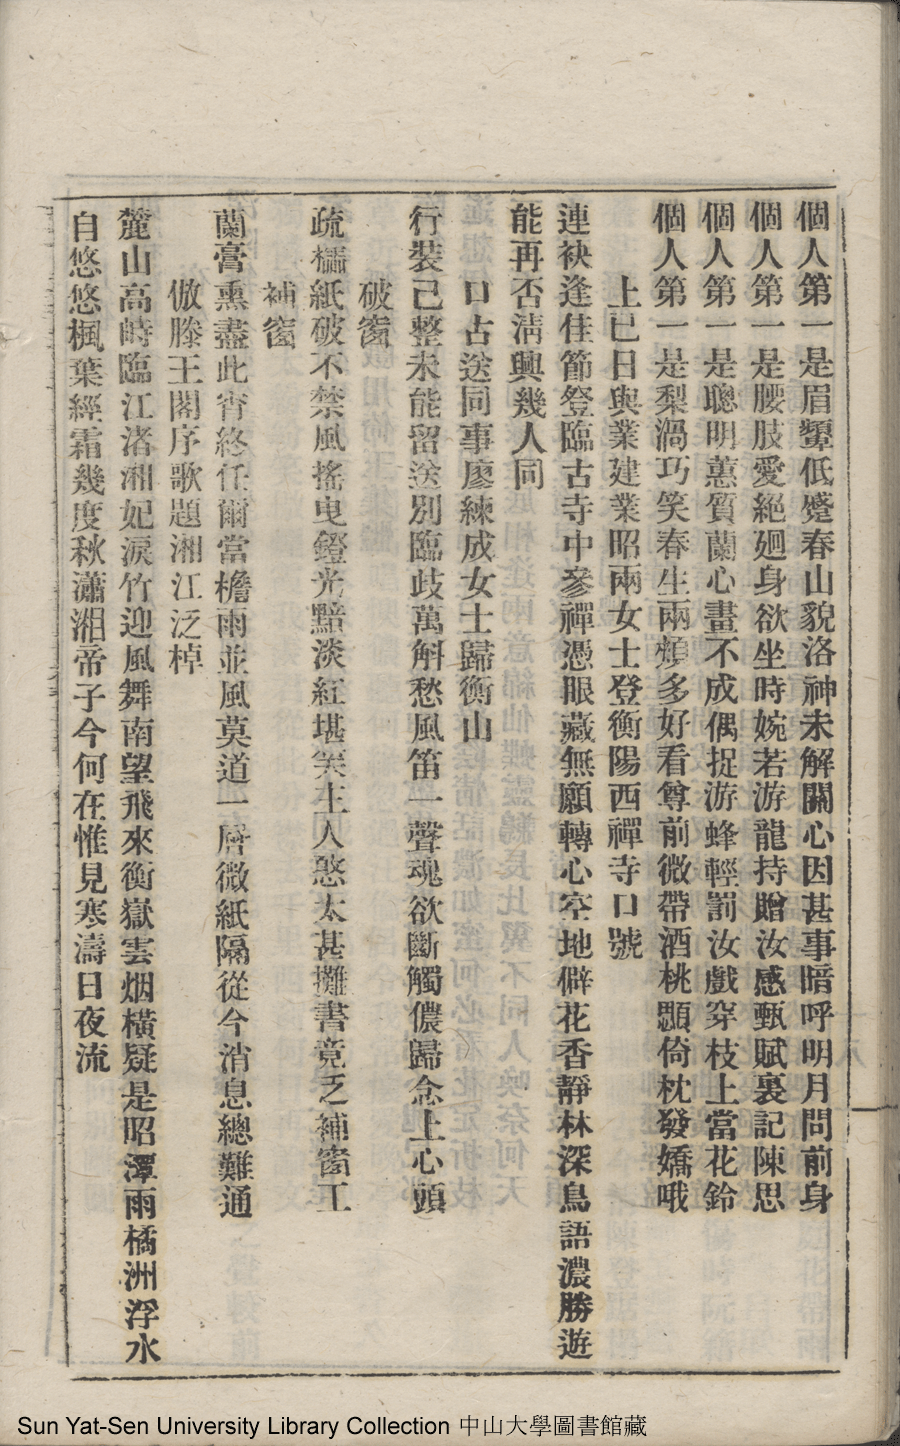 個人第一是眉顰低蹙春山貌洛神未解關心因甚事暗呼明月問前身
個人第一是腰肢愛絕廻身欲坐時婉若游龍持贈汝感甄賦裏記陳思
個人第一是聰明蕙質蘭心畫不成偶捉游蜂輕罰汝戲穿枝上當花鈴
個人第一是梨渦巧笑春生兩頰多好看尊前微帶酒桃顋倚枕發嬌哦
上已日與業建業昭兩女士登衡陽西禪寺口號
連袂逢佳節登臨古寺中參禪憑眼藏無願轉心空地僻花香靜林深鳥語濃勝遊
能再否淸興幾人同
口占送同事廖練成女士歸衡山
行裝已整未能留送別臨歧萬斛愁風笛一聲魂欲斷觸儂歸念上心頭
破窗
疏櫺紙破不禁風搖曳鐙光黯淡紅堪笑主人憨太甚攤書竟乏補窗工
補窗
蘭膏熏盡此宵終任爾當檐雨並風莫道一層微紙隔從今消息總難通
倣滕王閣序歌題湘江泛棹
麓山高峙臨江渚湘妃淚竹迎風舞南望飛來衡嶽雲烟橫疑是昭潭雨橘洲浮水
白悠悠楓葉經霜幾度秋瀟湘帝子今何在惟見寒濤日夜流
Sun Yat-Sen University Library Collection 中山大學圖書館藏